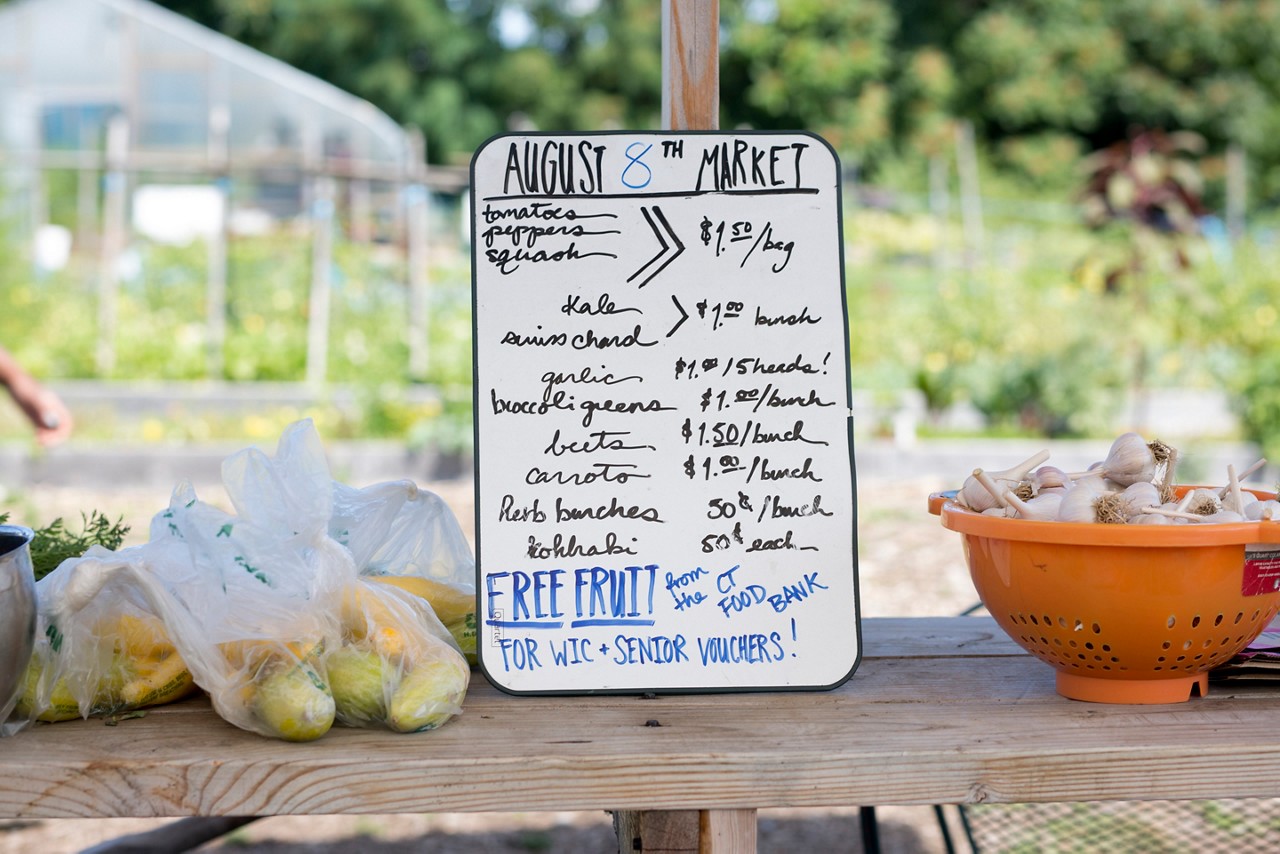 AUGUST 8TH MARKET
tomatoes
peppers
squash
$1.50/bag
Kale
swiss chard
$1.00 bunch
garlic $1.00/5 heads!
broccoli greens $1.00/bunch
beets $1.50/bunch
carrots $1.00/bunch
Herb bunches 50¢/bunch
Kohlrabi 50¢ each
FREE FRUIT from the CT FOOD BANK
FOR WIC + SENIOR VOUCHERS!
Quartet